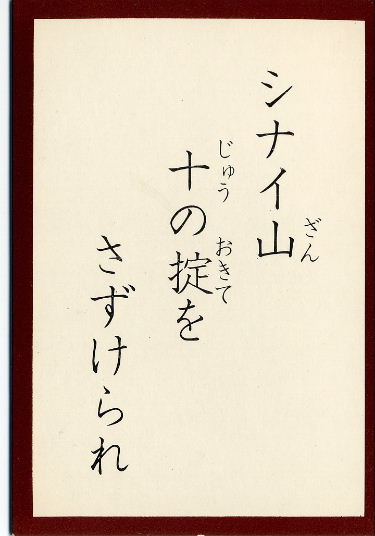 シナイ山
ざん
十の掟を
じゅう おきて
さずけられ